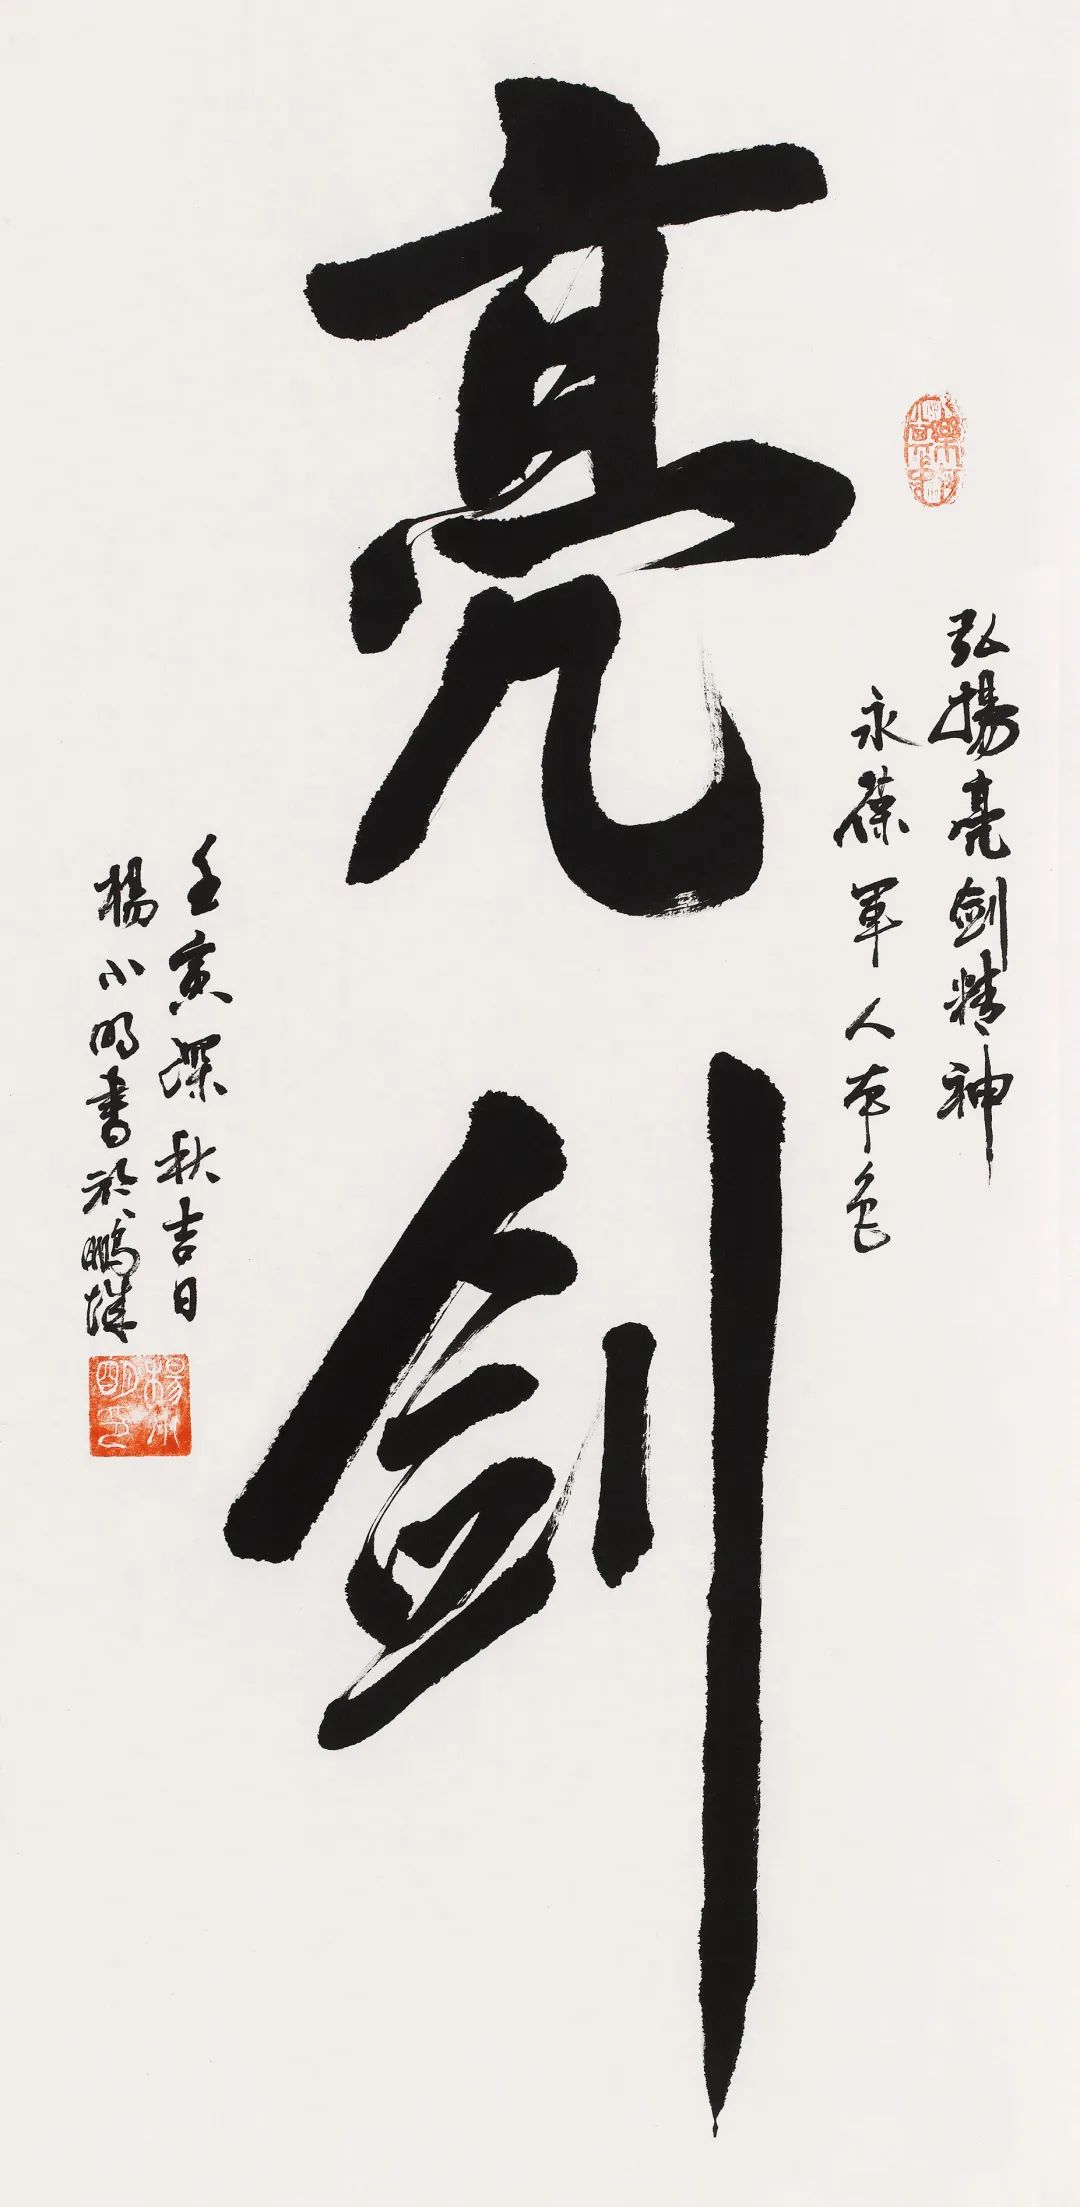 弘揚亮剑精神
永葆軍人本色
亮剑
壬寅深秋吉日
楊小明書於鵬城
楊小
明印